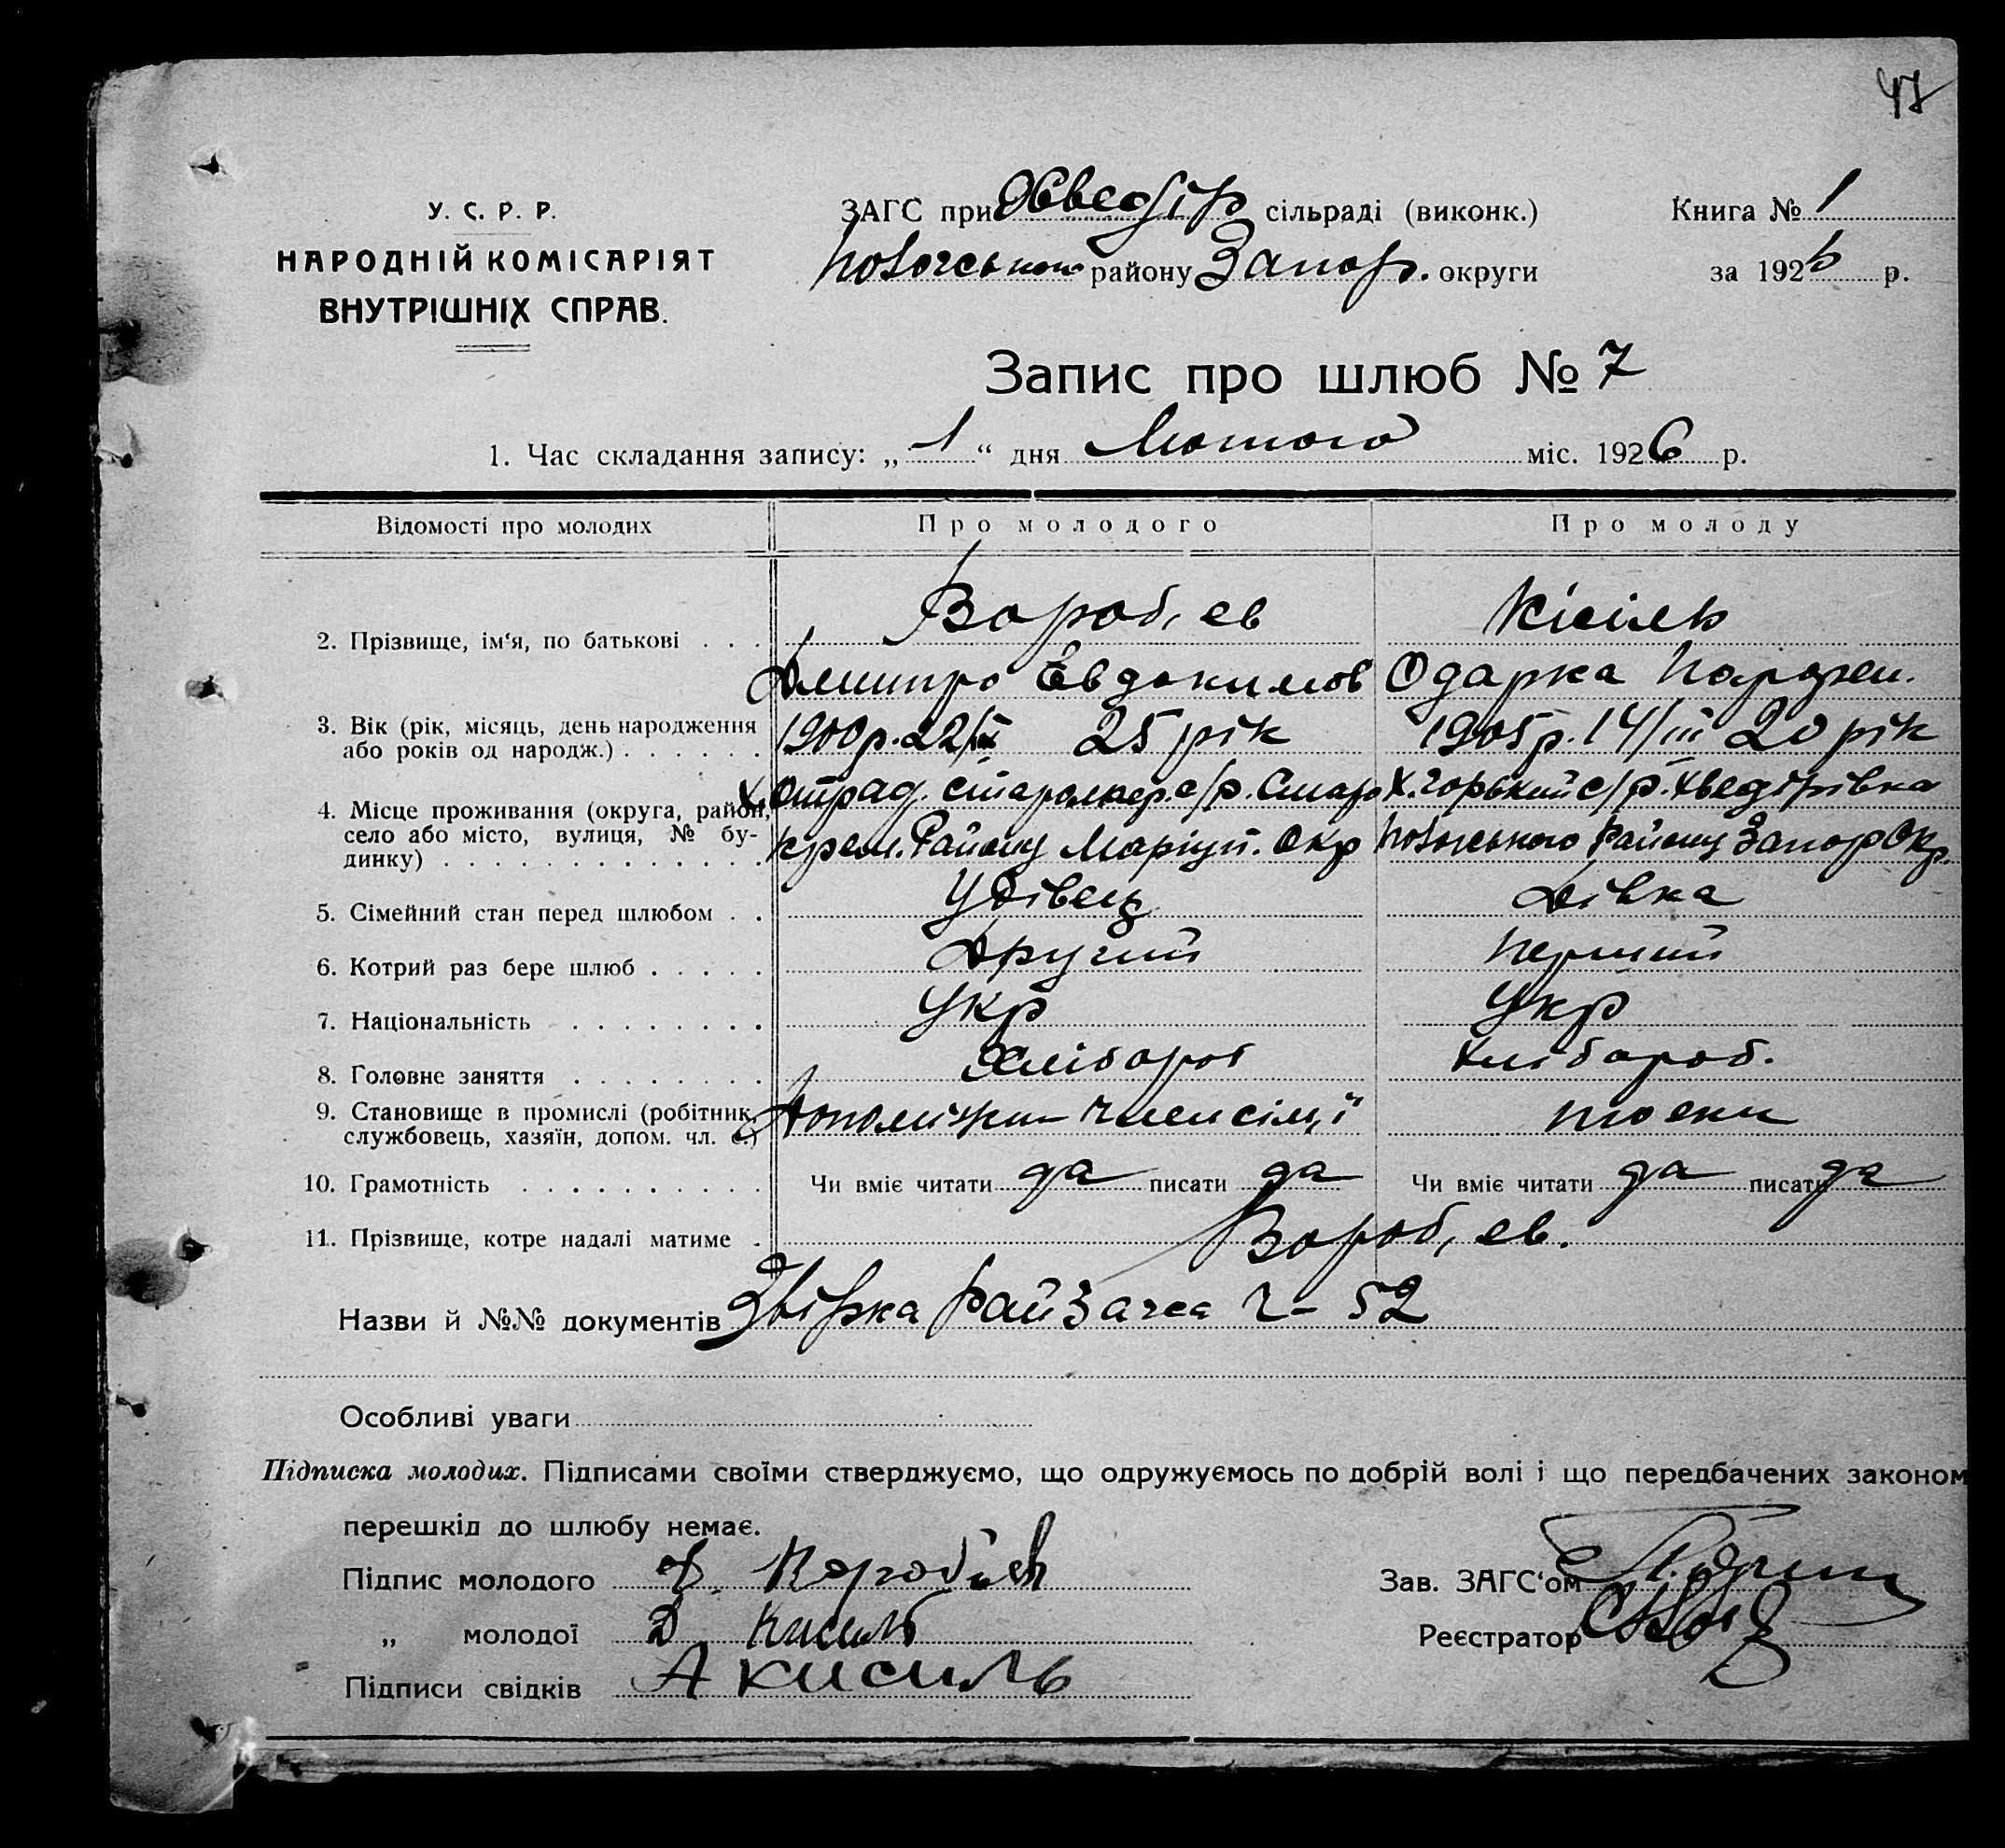 47
У. С. Р. Р.
НАРОДНІЙ КОМІСАРІЯТ
ВНУТРІШНІХ СПРАВ.
ЗАГС при Хведір сільраді (виконк.)
району Запор. округи
Книга № 1
за 1926 р.
Запис про шлюб № 7
1. Час складання запису: „1“ дня Лютого міс. 1926 р.
Відомості про молодих Про молодого Про молоду
2. Прізвище, ім‘я, по батькові . . . Вороб,ев Кісіль
Дмитро Евдокимов Одарка Парфен.
3. Вік (рік, місяць, день народження 1900 р. 25 рік 1905 р. 14/III 20 рік
або років од народж.) . . . . . .
4. Місце проживання (округа, район, х. Отрад. с/р. Старо х. Горький с/р. Хведірівка
село або місто, вулиця, № бу- крем. Району Маріуп. Окр Району Запор Окр.
динку) . . . . . . . . . . . . .
5. Сімейний стан перед шлюбом . . Удівець Дівка
6. Котрий раз бере шлюб . . . . . Другий Перший
7. Національність . . . . . . . . Укр Укр
8. Головне заняття . . . . . . . . Хлібороб Хлібороб.
9. Становище в промислі (робітник, член сім,ї тоеж
службовець, хазяїн, допом. чл. с.)
10. Грамотність . . . . . . . . . . Чи вміє читати да писати да Чи вміє читати да писати да
11. Прізвище, котре надалі матиме . Вороб,ев.
Назви й №№ документів Звірка РайЗагса Ч – 52
Особливі уваги
Підписка молодих. Підписами своїми стверджуємо, що одружуємось по добрій волі і що передбачених законом
перешкід до шлюбу немає.
Підпис молодого Д.
Зав. ЗАГС‘ом
„ молодої Д Кисиль
Реєстратор
Підписи свідків А Кисиль